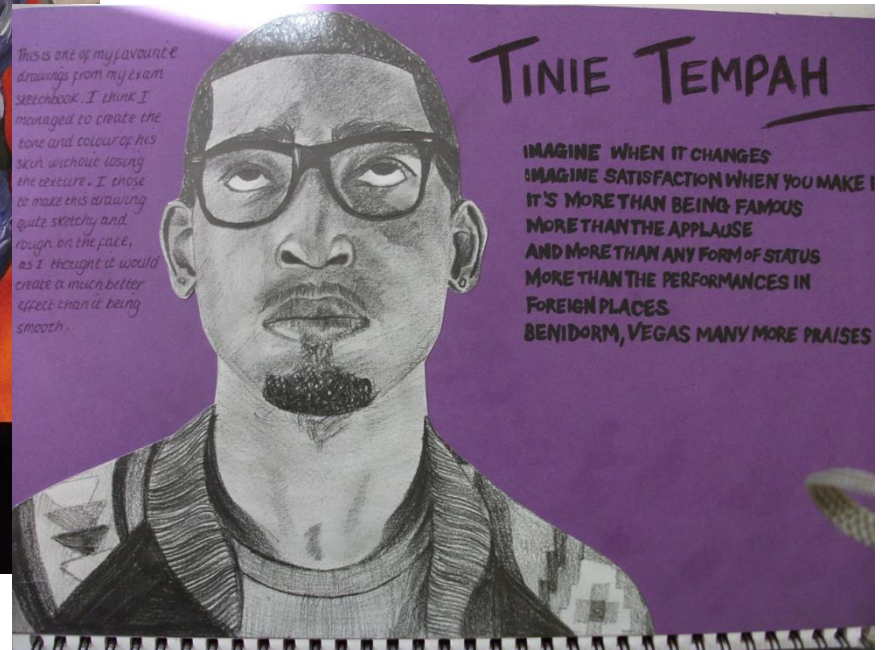 This is one of my favourite
drawings from my exam
sketchbook. I think I
managed to create the
tone and colour of his
skin without losing
the texture. I chose
to make this drawing
quite sketchy and
rough on the face,
as I thought it would
create a much better
effect than it being
smooth.
TINIE TEMPAH
IMAGINE WHEN IT CHANGES
IMAGINE SATISFACTION WHEN YOU MAKE
IT'S MORE THAN BEING FAMOUS
MORE THAN THE APPLAUSE
AND MORE THAN ANY FORM OF STATUS
MORE THAN THE PERFORMANCES IN
FOREIGN PLACES
BENIDORM, VEGAS MANY MORE PRAISES